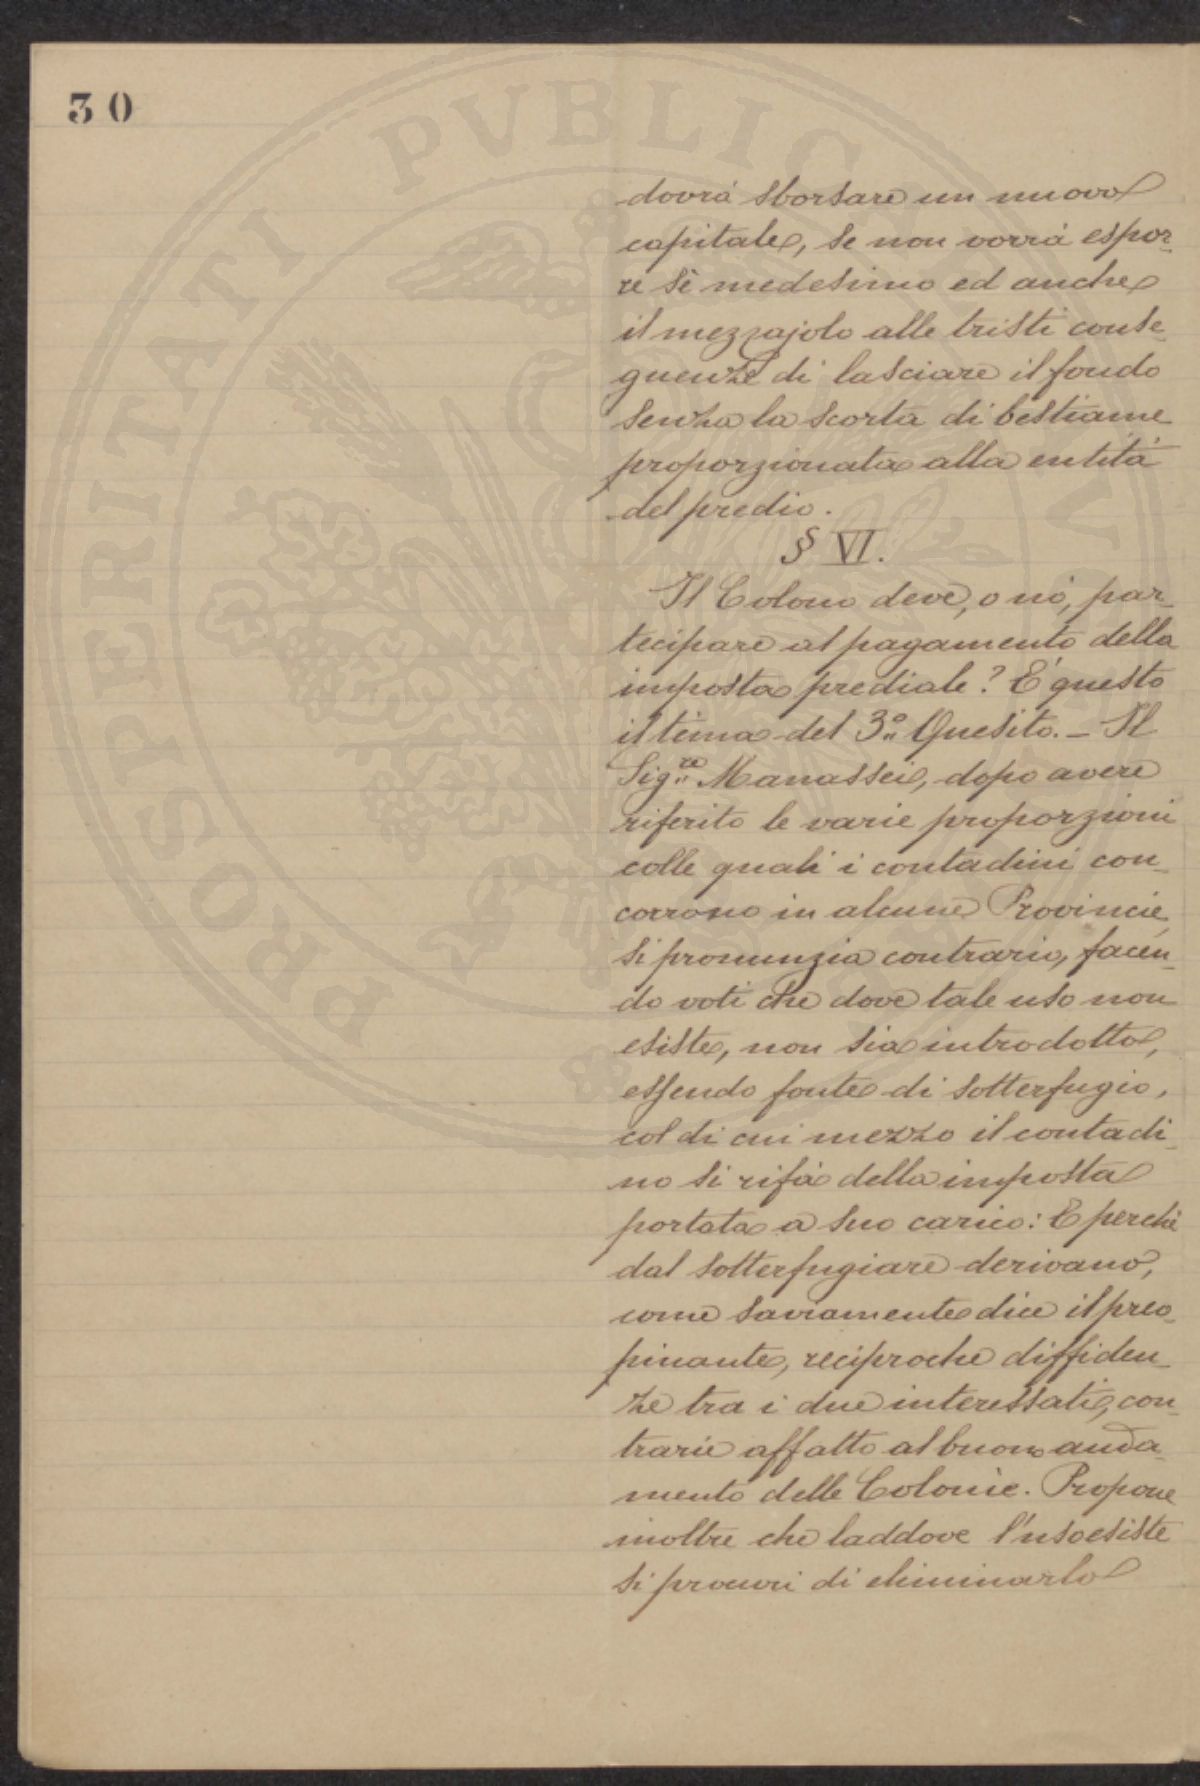 30
PROSPERITATI PVBLICAE
dovrà sborsare un nuovo
capitale, se non vorrà espor-
re sè medesimo ed anche
il mezzajolo alle tristi conse-
guenze di lasciare il fondo
senza la scorta di bestiame
proporzionata alla entità
del predio.
§ VI.
Il Colono deve, o nò, par-
tecipare al pagamento della
imposta prediale? È questo
il tèma del 3º Quesito. — Il
Sig.re Manassei, dopo avere
riferito le varie proporzioni
colle quali i contadini con-
corrono in alcune Provincie,
si pronunzia contrario, facen-
do voti che dove tale uso non
esiste, non sia introdotto,
essendo fonte di sotterfugio,
col di cui mezzo il contadi-
no si rifà della imposta
portata a suo carico: E perchè
dal sotterfugiare derivano,
come saviamente dice il preo-
pinante, reciproche diffiden-
ze tra i due interessati, con-
trarie affatto al buono anda-
mento delle Colonìe. Propone
inoltre che laddove l'uso esiste
si procuri di eliminarlo